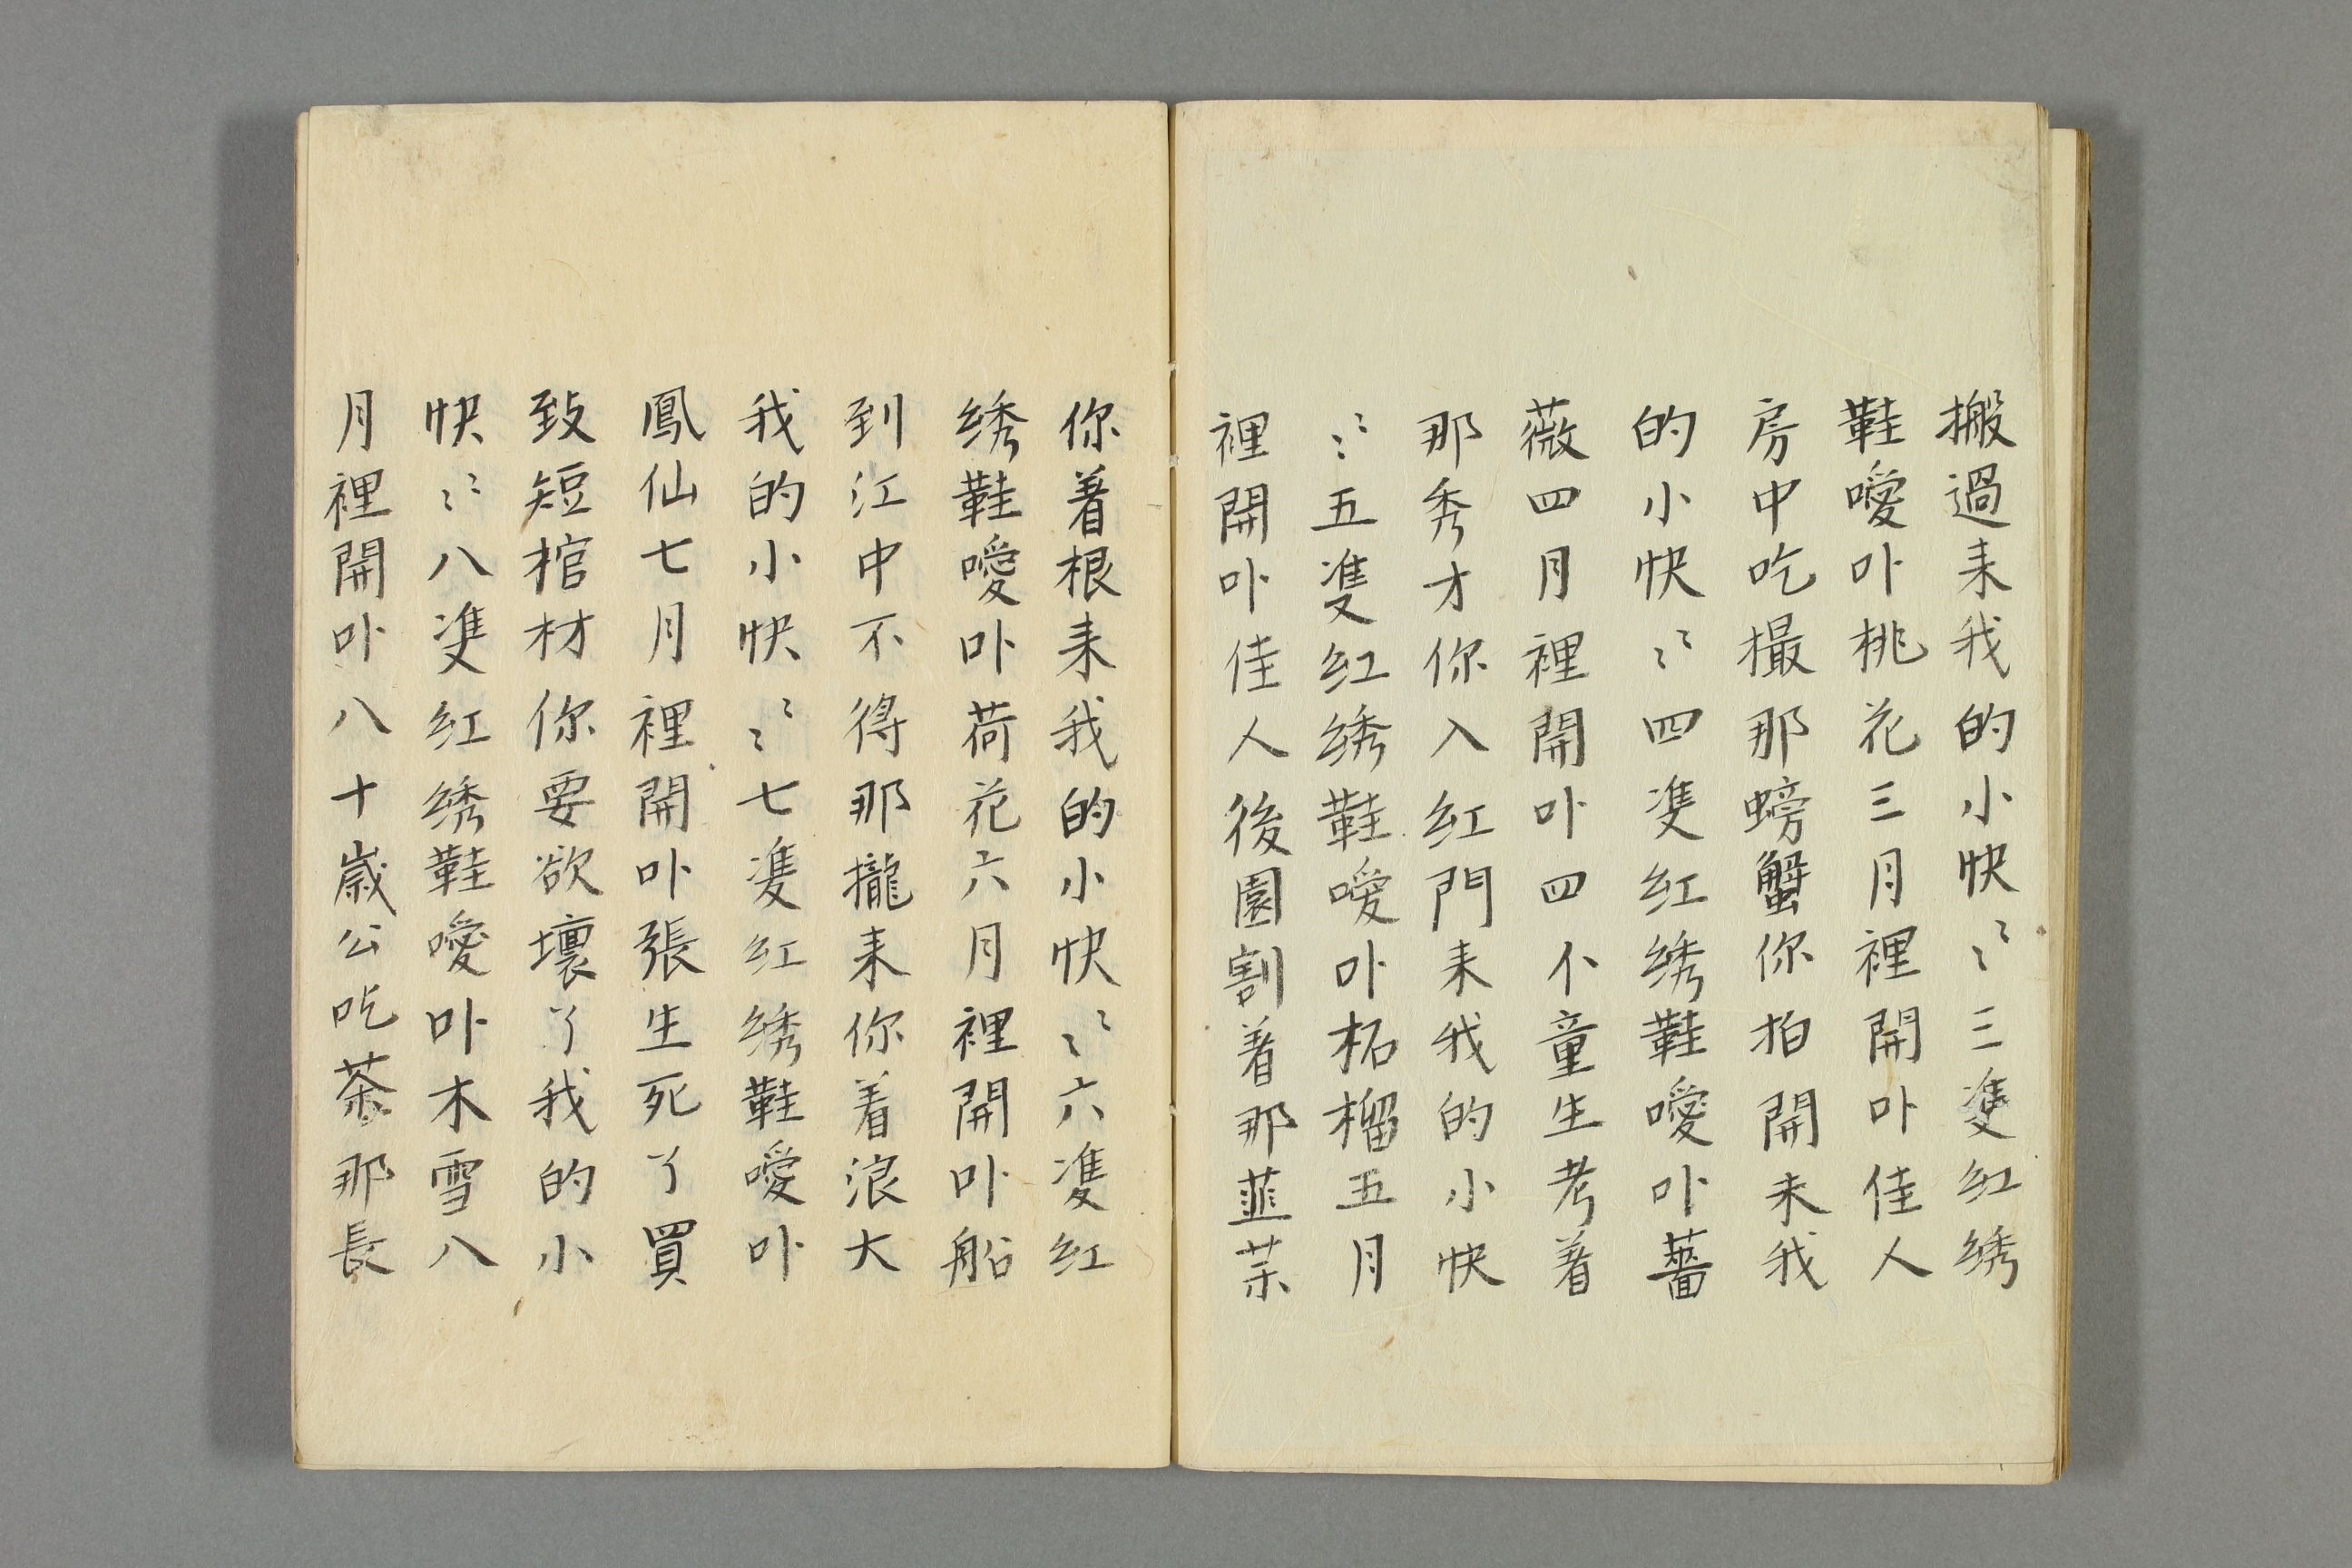 搬過来我的小快〻〻三隻红綉
鞋噯卟桃花三月裡開卟佳人
房中吃撮那螃蟹你拍開未我
的小快〻〻四隻红綉鞋噯卟薔
薇四月裡開卟四个童生考着
那秀才你入红門来我的小快
〻〻五隻红綉鞋噯卟柘榴五月
裡開卟佳人後園割着那韮菜
你着根来我的小快〻〻六隻红
綉鞋噯卟荷花六月裡開卟船
到江中不得那攏来你着浪大
我的小快〻〻七隻红綉鞋噯卟
鳳仙七月裡開卟張生死了買
致短棺材你要欲壞了我的小
快〻〻八隻红綉鞋噯卟木雪八
月裡開卟八十歳公吃茶那長